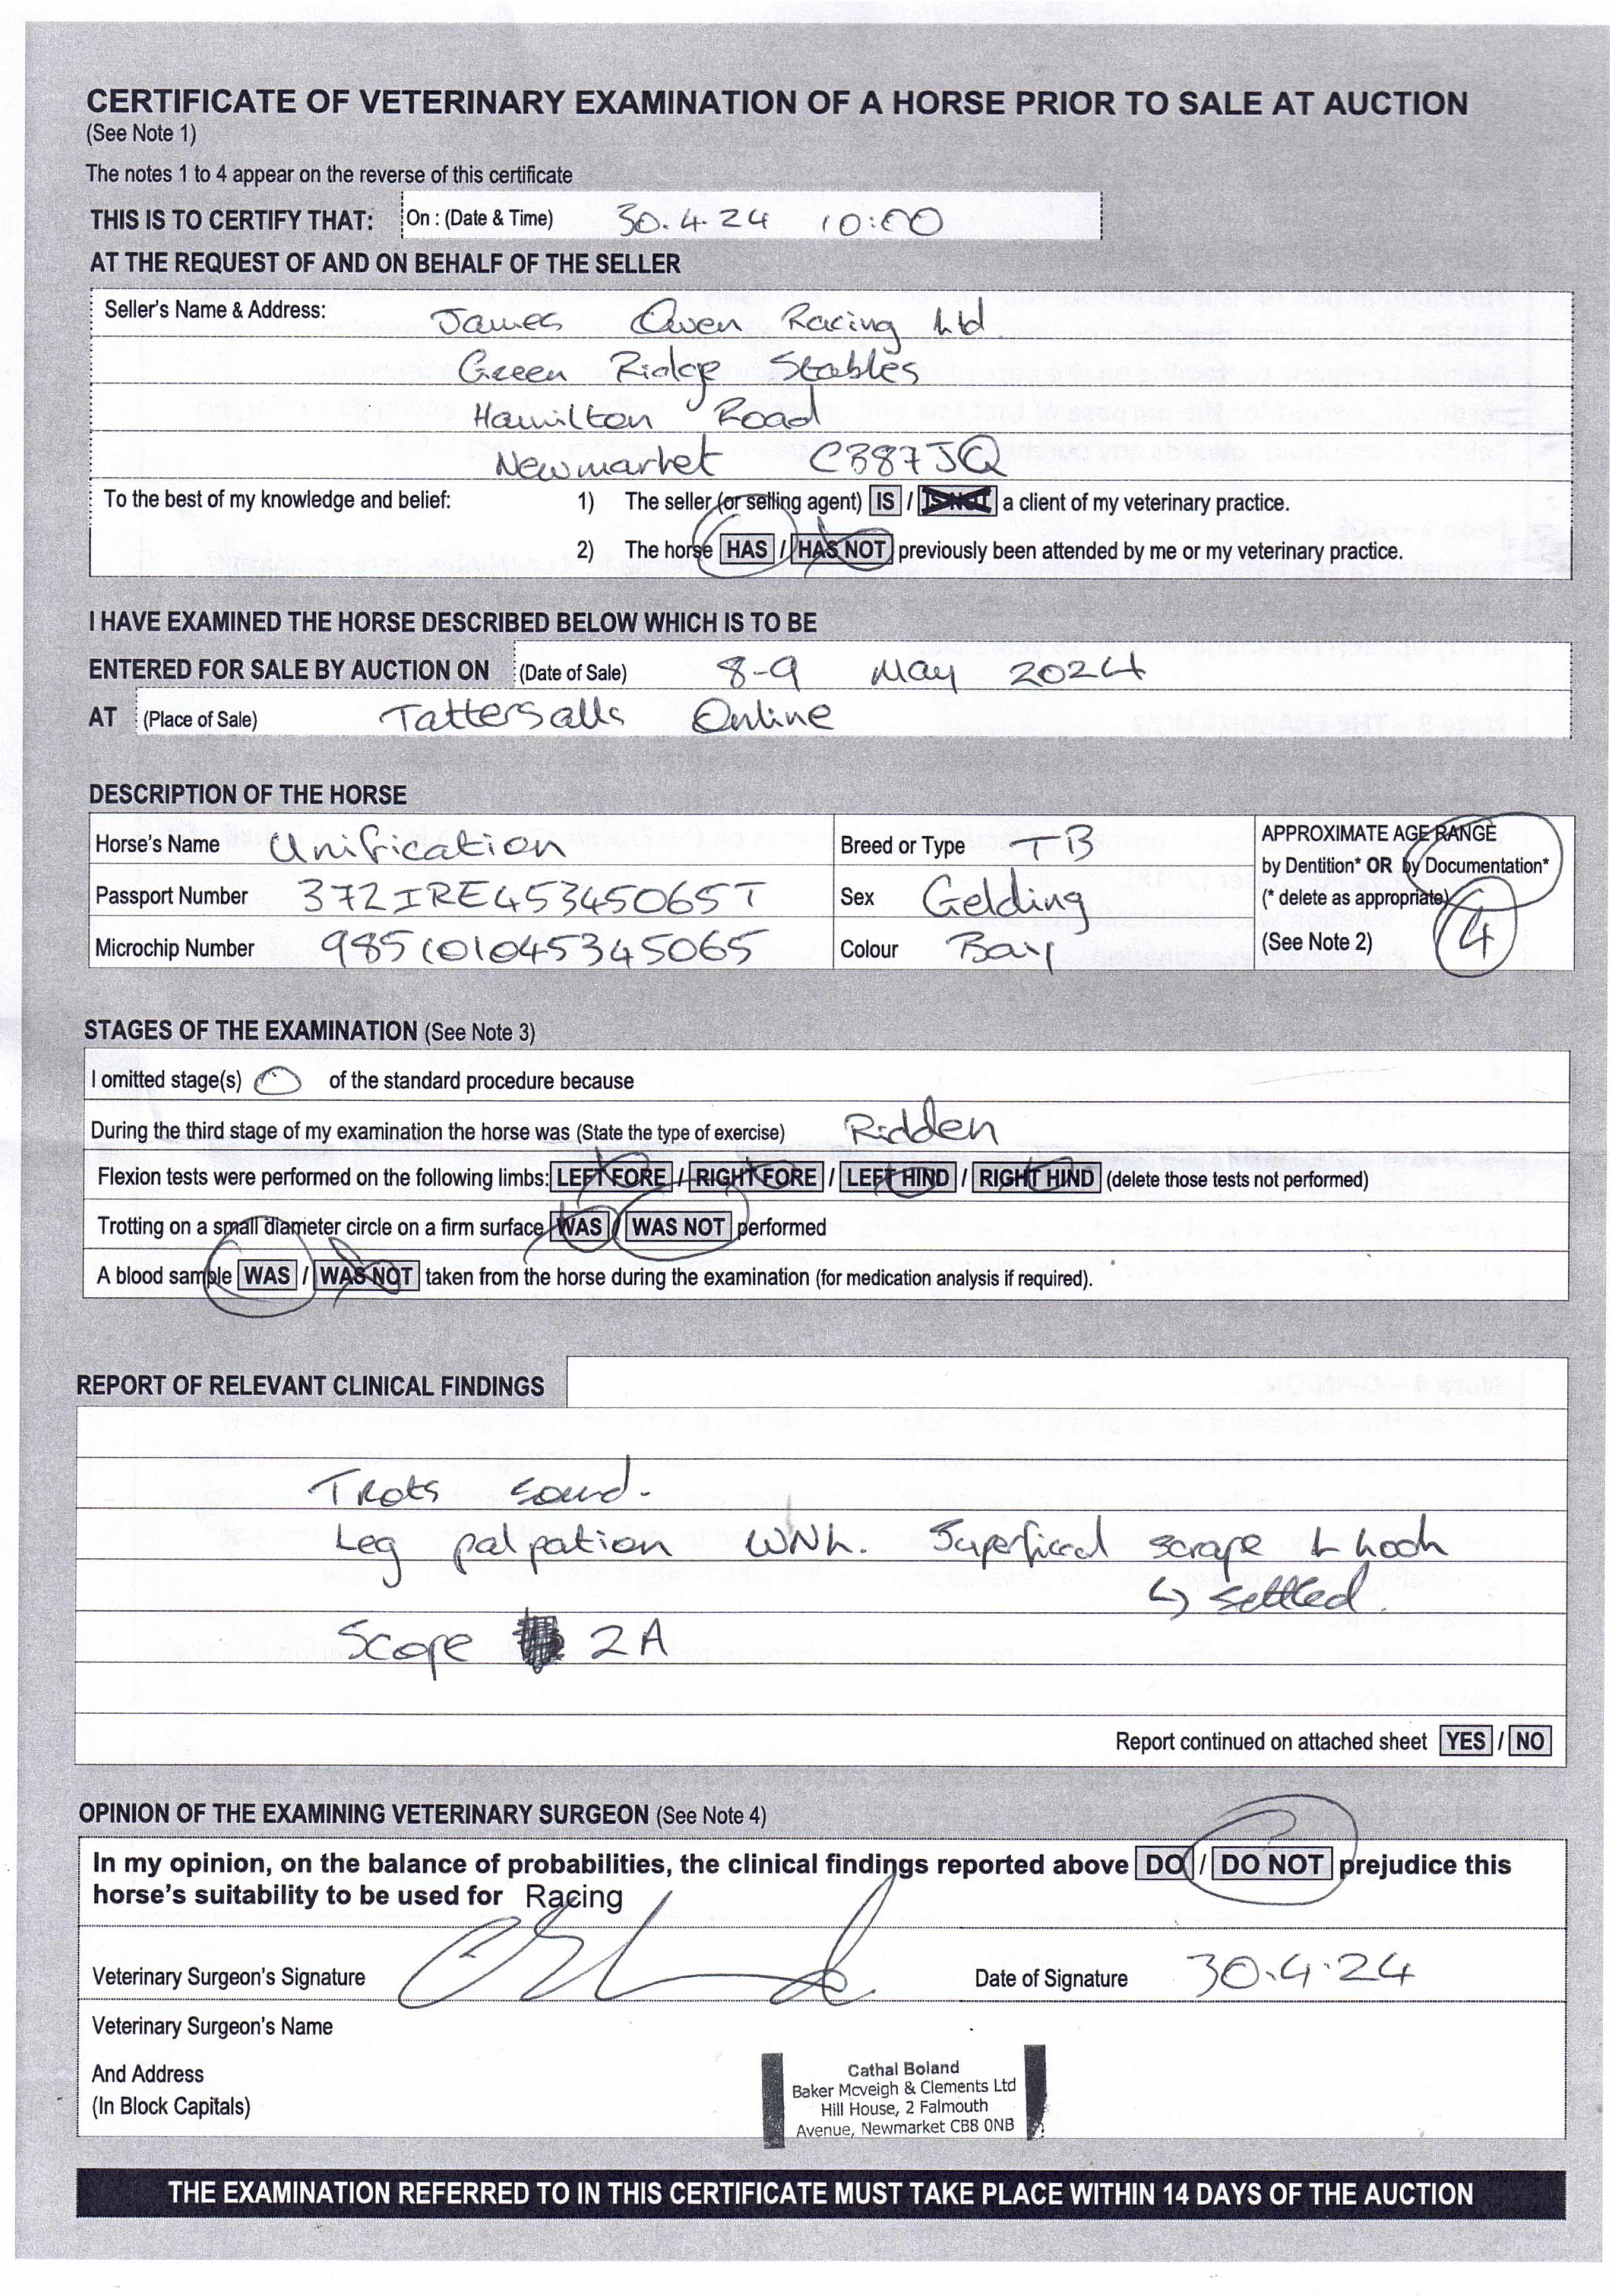 CERTIFICATE OF VETERINARY EXAMINATION OF A HORSE PRIOR TO SALE AT AUCTION
(See Note 1)
The notes 1 to 4 appear on the reverse of this certificate
THIS IS TO CERTIFY THAT: On : (Date & Time) 30.4.24 10:00
AT THE REQUEST OF AND ON BEHALF OF THE SELLER
Seller's Name & Address: James Owen Racing Ltd
Green Ridge Stables
Hamilton Road
Newmarket CB87JQ
To the best of my knowledge and belief: 1) The seller (or selling agent) IS / IS NOT a client of my veterinary practice.
2) The horse HAS / HAS NOT previously been attended by me or my veterinary practice.
I HAVE EXAMINED THE HORSE DESCRIBED BELOW WHICH IS TO BE
ENTERED FOR SALE BY AUCTION ON (Date of Sale) 8-9 May 2024
AT (Place of Sale) Tattersalls Online
DESCRIPTION OF THE HORSE
Horse's Name Unification Breed or Type TB
Passport Number 372IRE45345065T Sex Gelding
Microchip Number 985101045345065 Colour Bay
APPROXIMATE AGE RANGE
by Dentition* OR by Documentation*
(* delete as appropriate)
(See Note 2) 4
STAGES OF THE EXAMINATION (See Note 3)
I omitted stage(s) 0 of the standard procedure because
During the third stage of my examination the horse was (State the type of exercise) Ridden
Flexion tests were performed on the following limbs: LEFT FORE / RIGHT FORE / LEFT HIND / RIGHT HIND (delete those tests not performed)
Trotting on a small diameter circle on a firm surface WAS / WAS NOT performed
A blood sample WAS / WAS NOT taken from the horse during the examination (for medication analysis if required).
REPORT OF RELEVANT CLINICAL FINDINGS
Trots sound.
Leg palpation WNL. Superficial scrape L hock
↳ settled.
Scope 2A
Report continued on attached sheet YES / NO
OPINION OF THE EXAMINING VETERINARY SURGEON (See Note 4)
In my opinion, on the balance of probabilities, the clinical findings reported above DO / DO NOT prejudice this
horse's suitability to be used for Racing
Veterinary Surgeon's Signature Date of Signature 30.4.24
Veterinary Surgeon's Name
And Address
(In Block Capitals)
Cathal Boland
Baker Mcveigh & Clements Ltd
Hill House, 2 Falmouth
Avenue, Newmarket CB8 0NB
THE EXAMINATION REFERRED TO IN THIS CERTIFICATE MUST TAKE PLACE WITHIN 14 DAYS OF THE AUCTION